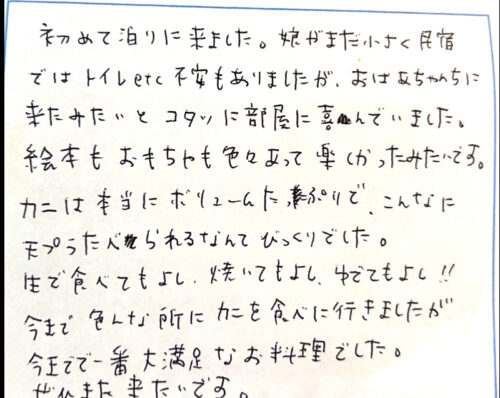 初めて泊りに来ました。娘がまだ小さく民宿
ではトイレetc不安もありましたが、おばあちゃんちに
来たみたいとコタツに部屋に喜んでいました。
絵本もおもちゃも色々あって楽しかったみたいです。
カニは本当にボリュームたっぷりで、こんなに
天プラたべられるなんてびっくりでした。
生で食べてもよし、焼いてもよし、ゆでてもよし!!
今まで色んな所にカニを食べに行きましたが
今までで一番大満足なお料理でした。
ぜひまた来たいです。